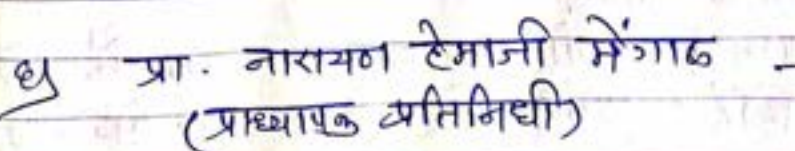 ध) प्रा. नारायण हेमाजी मेंगाळ -
(प्राध्यापक प्रतिनिधी)